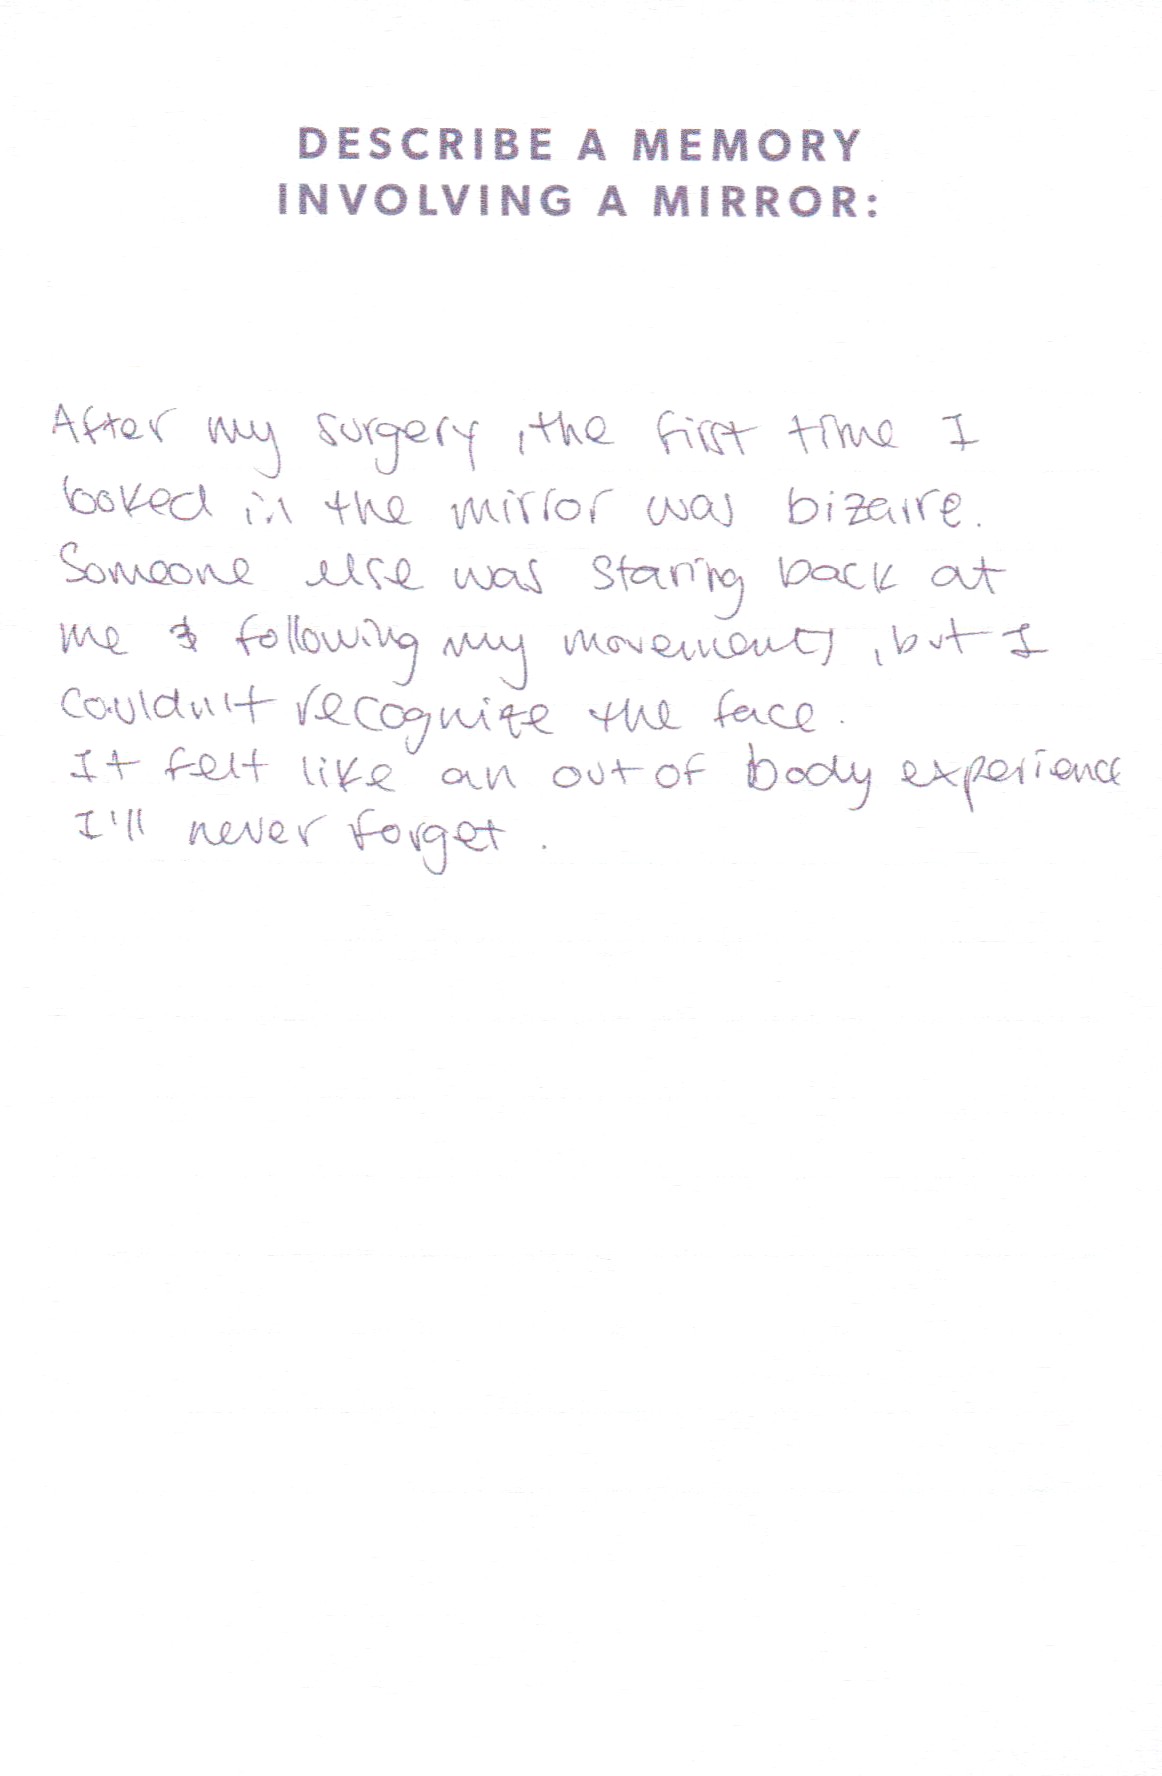 DESCRIBE A MEMORY
INVOLVING A MIRROR:
After my surgery, the first time I
looked in the mirror was bizaire.
Someone else was staring back at
me & following my movements, but I
couldn't recognize the face.
It felt like an out of body experience
I'll never forget.